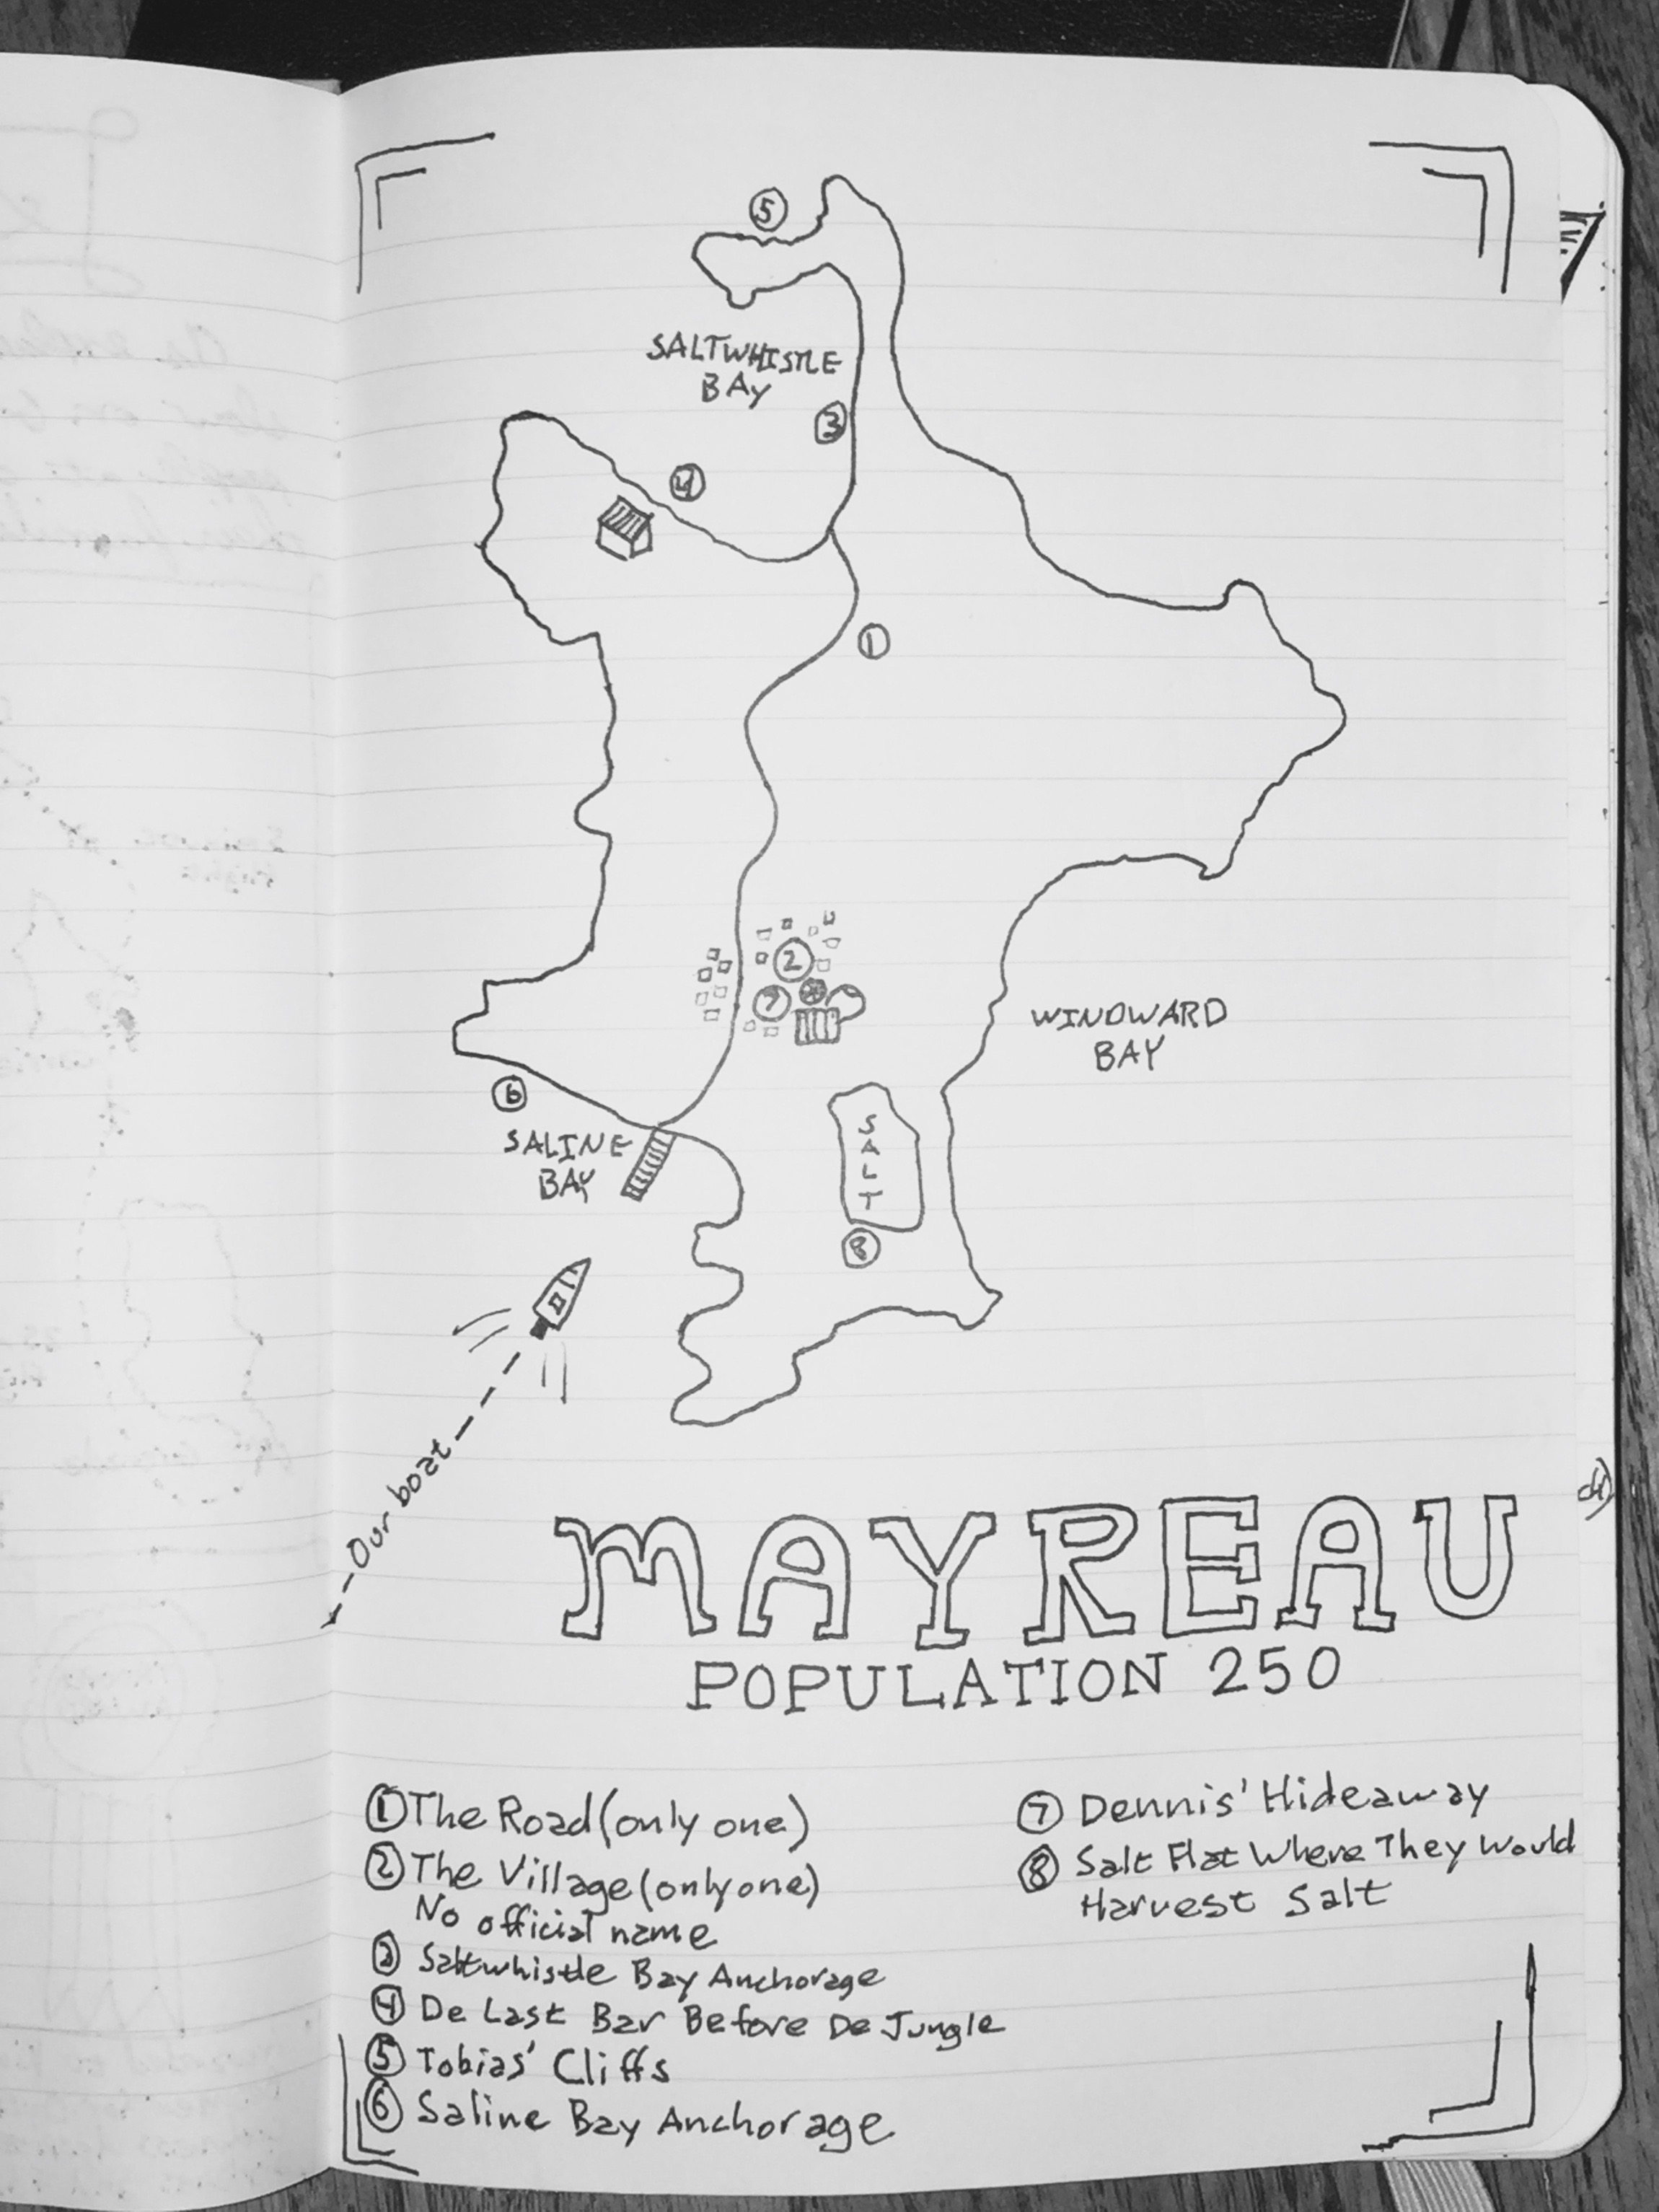 5
SALTWHISTLE
BAY
3
4
1
2
7
WINDWARD
BAY
6
SALINE
BAY
SALT
8
Our boat
MAYREAU
POPULATION 250
1 The Road (only one)
2 The Village (only one)
No official name
3 Saltwhistle Bay Anchorage
4 De Last Bar Before De Jungle
5 Tobias' Cliffs
6 Saline Bay Anchorage
7 Dennis' Hideaway
8 Salt Flat Where They Would
Harvest Salt